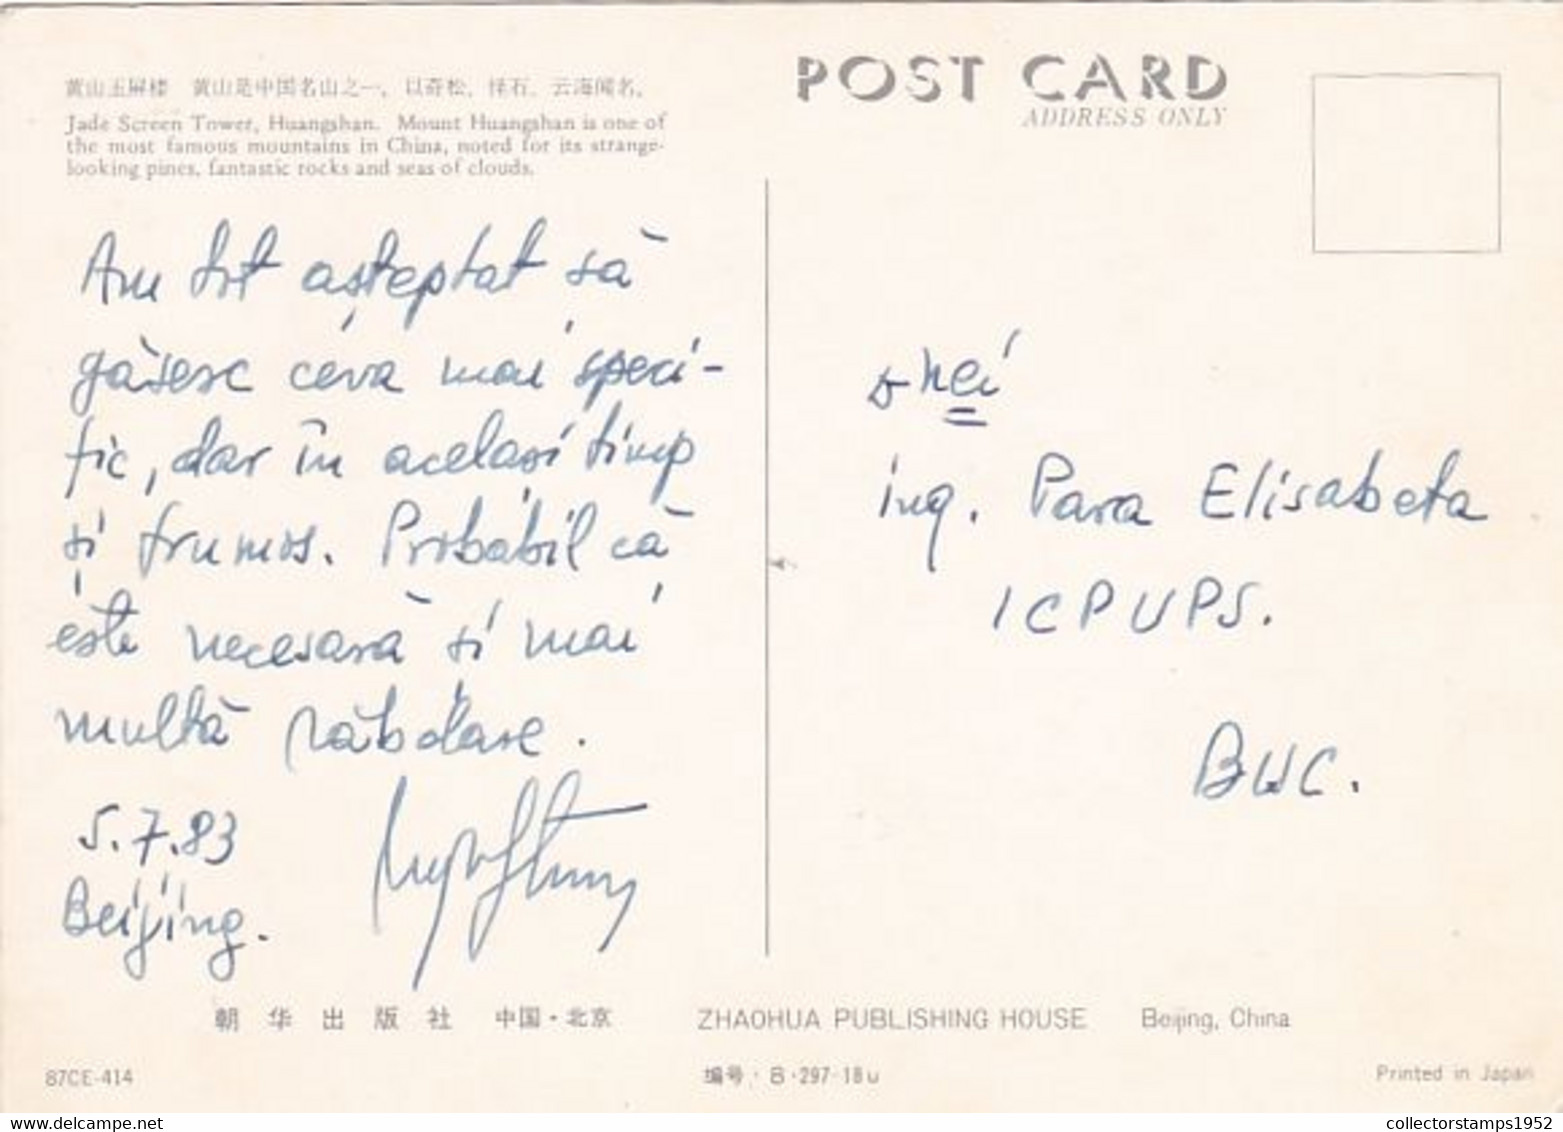 黄山玉屏楼 黄山是中国名山之一，以奇松、怪石、云海闻名。
Jade Screen Tower, Huangshan. Mount Huangshan is one of
the most famous mountains in China, noted for its strange-
looking pines, fantastic rocks and seas of clouds.
Am tot așteptat să
găsesc ceva mai speci-
fic, dar în același timp
și frumos. Probabil că
este necesară și mai
multă răbdare.
5.7.83
Beijing.
POST CARD
ADDRESS ONLY
ing. Para Elisabeta
ICPUPS.
BUC.
朝华出版社 中国·北京 ZHAOHUA PUBLISHING HOUSE Beijing, China
87CE-414 编号·8·297-18u Printed in Japan
collectorstamps1952